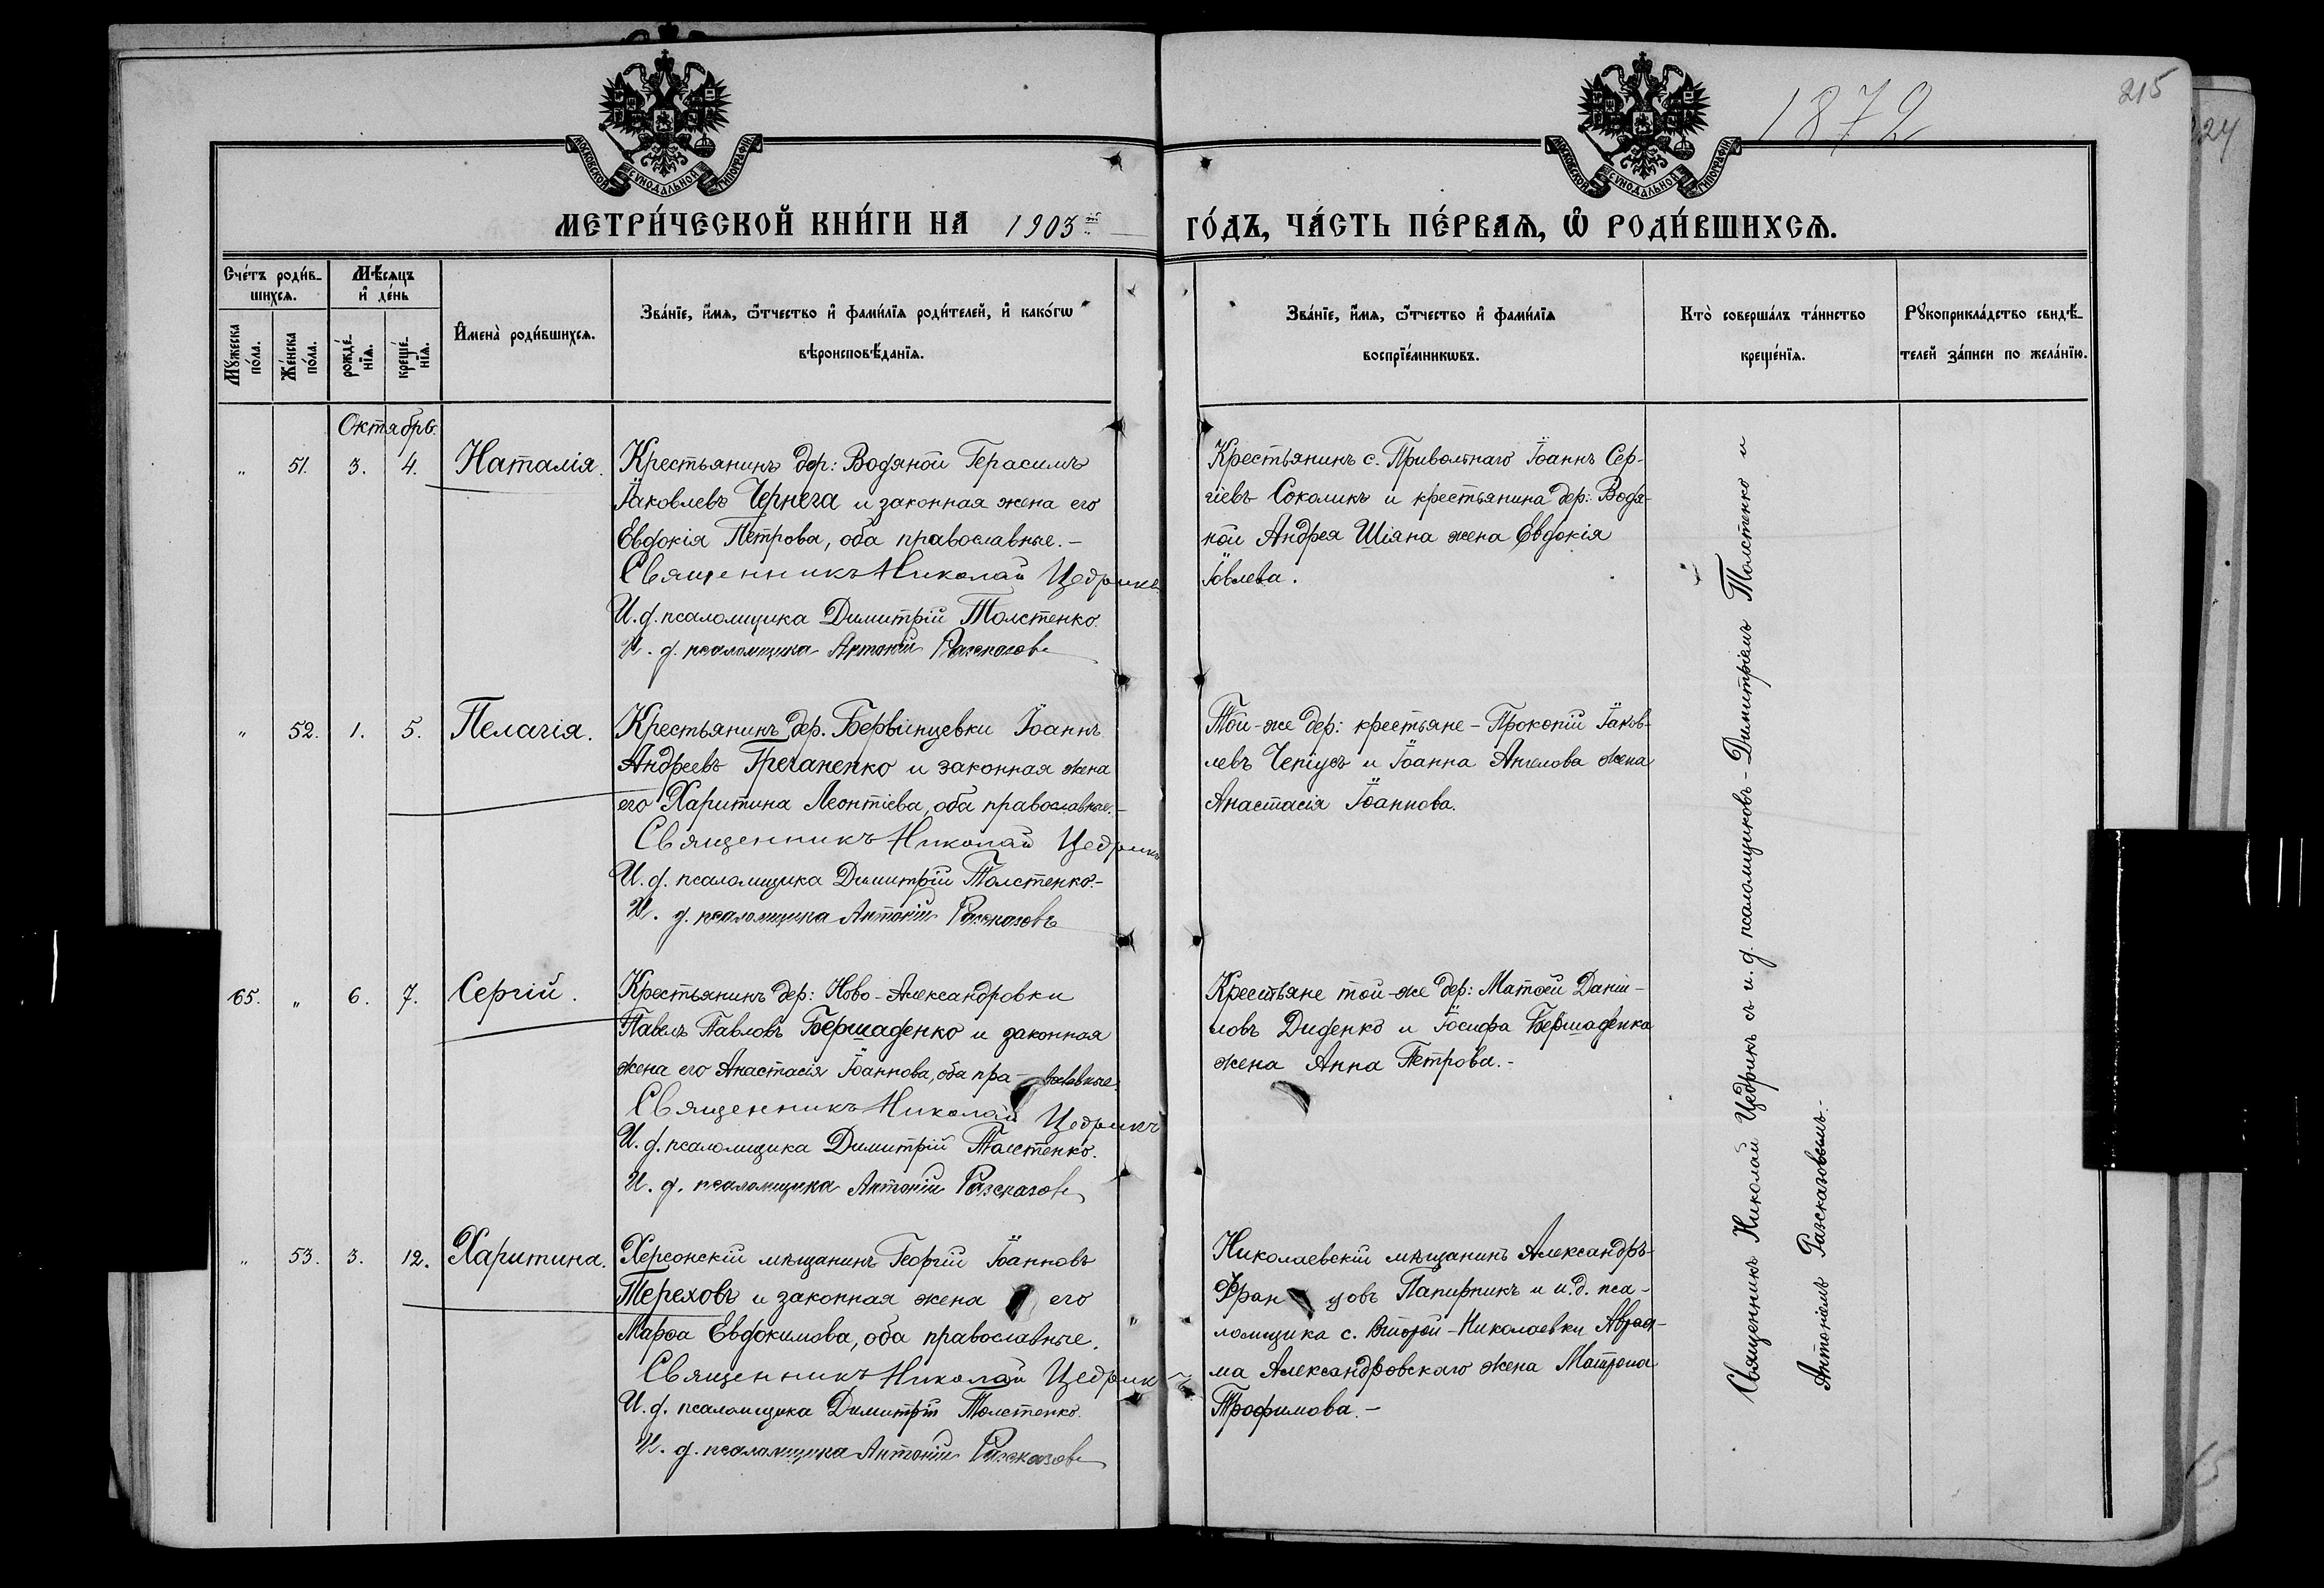 1872
215
224
МОСКОВСКОЙ СѴНОДАЛЬНОЙ ТИПОГРАФІИ
МОСКОВСКОЙ СѴНОДАЛЬНОЙ ТИПОГРАФІИ
МЕТРИ́ЧЕСКОЙ КНИ́ГИ НА 1903 й ГО́ДЪ, ЧА́СТЬ ПЕ́РВАѦ, Ѡ҆ РОДИ́ВШИХСѦ.
Сче́тъ роди́в-
шихсѧ.
Мѣ́сѧцъ
и҆ де́нь
Мꙋжеска
по́ла.
Же́нска
по́ла.
рожде́-
нїѧ.
креще́-
нїѧ.
И҆мена̀ роди́вшихсѧ.
Зва́нїе, и҆́мѧ, ѻ҆́тчество и҆ фами́лїѧ роди́телей, и҆ како́гѡ
вѣроисповѣ́данїѧ.
Зва́нїе, и҆́мѧ, ѻ҆́тчество и҆ фами́лїѧ
воспрїе́мникѡвъ.
Кто̀ соверша́лъ та́инство
креще́нїѧ.
Рꙋкоприкла́дство свидѣ́-
телей за́писи по жела́нїю.
Октябрь.
„ 51. 3. 4. Наталія.
Крестьянинъ дер: Водяной Герасимъ
Іаковлевъ Чернега и законная жена его
Евдокія Петрова, оба православные.-
Священникъ Николай Цедрикъ
И. д. псаломщика Димитрій Толстенко.
И. д. псаломщика Антоній Разсказовъ
Крестьянинъ с. Привольнаго Іоаннъ Сер-
гіевъ Соколикъ и крестьянина дер: Водя-
ной Андрея Шіяна жена Евдокія
Іовлева.
„ 52. 1. 5. Пелагія.
Крестьянинъ дер. Бервінцевки Іоаннъ
Андреевъ Гречаненко и законная жена
его Харитина Леонтіева, оба православные.-
Священникъ Николай Цедрикъ
И. д. псаломщика Димитрій Толстенко.-
И. д. псаломщика Антоній Разсказовъ
Той-же дер: крестьяне - Прокопій Іаков-
левъ и Іоанна Ангелова жена
Анастасія Іоаннова.
65. „ 6. 7. Сергій.
Крестьянинъ дер: Ново-Александровки
Павелъ Павловъ Бершаденко и законная
жена его Анастасія Іоаннова, оба пра - вославные.
Священникъ Николай Цедрикъ
И. д. псаломщика Димитрій Толстенко.
И. д. псаломщика Антоній Разсказовъ
Крестьяне той-же дер: Матѳей Даніи-
ловъ Диденко и Іосифа Бершаденка
жена Анна Петрова.-
„ 53. 3. 12. Харитина.
Херсонскій мѣщанинъ Георгій Іоанновъ
Тереховъ и законная жена его
Марѳа Евдокимова, оба православные.
Священникъ Николай Цедрикъ
И. д. псаломщика Димитрій Толстенко.
И. д. псаломщика Антоній Разсказовъ
Николаевскій мѣщанинъ Александръ
Фран цовъ Папирникъ и и.д. пса-
ломщика с. Второй-Николаевки Авраа-
ма Александровскаго жена Матрона
Трофимова.-
Священникъ Николай Цедрикъ съ и. д. псаломщиковъ - Димитріемъ Толстенко и
Антоніемъ Разсказовымъ.-